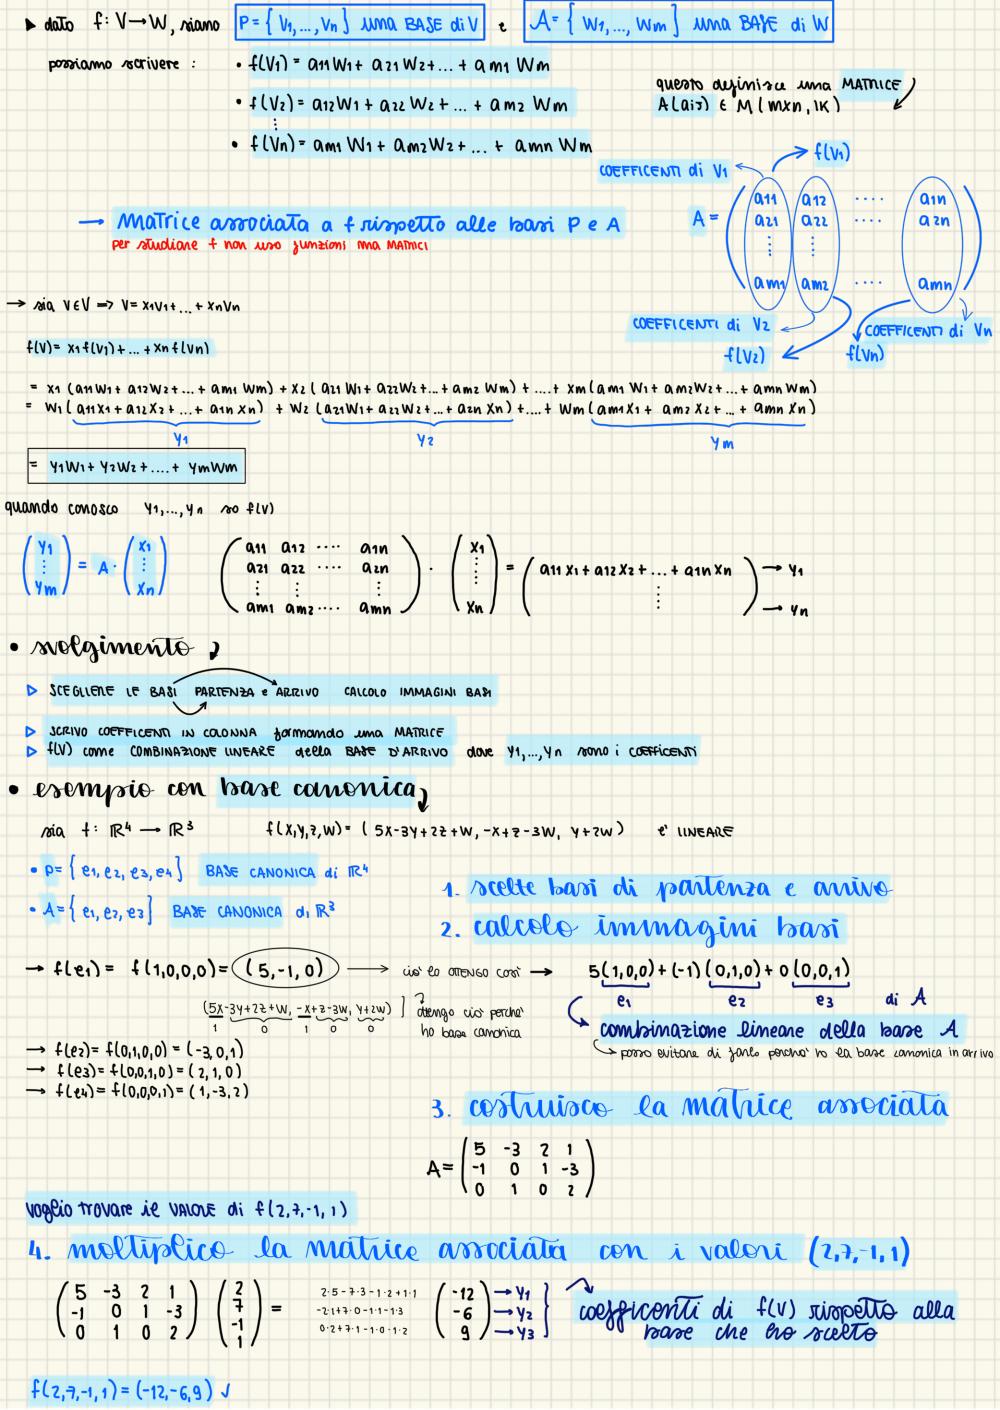 ▶ dato f: V→W, siano P = { V1,..., Vn } una BASE di V e A = { W1,..., Wm } una BASE di W
possiamo scrivere :
• f(V1) = a11W1 + a21W2 + ... + am1 Wm
• f(V2) = a12W1 + a22 W2 + ... + am2 Wm
⋮
• f(Vn) = am1 W1 + am2W2 + ... + amn Wm
questo definisce una MATRICE
A(aij) ∈ M(mxn, IK)
COEFFICENTI di V1
f(V1)
→ Matrice associata a f rispetto alle basi P e A
per studiare f non uso funzioni ma MATRICI
A =
a11 a12 .... a1n
a21 a22 .... a2n
⋮ ⋮
am1 am2 .... amn
COEFFICENTI di V2
COEFFICENTI di Vn
f(V2)
f(Vn)
→ sia V∈V => V = x1V1 + ... + xnVn
f(V) = x1 f(V1) + ... + xn f(Vn)
= x1 (a11W1 + a12W2 + ... + am1 Wm) + x2 (a21 W1 + a22W2 + ... + am2 Wm) + .... + xm (am1 W1 + am2W2 + ... + amn Wm)
= W1 (a11x1 + a12x2 + ... + a1n xn) + W2 (a21W1 + a22W2 + ... + a2n xn) + .... + Wm (am1x1 + am2 x2 + ... + amn xn)
y1 y2 ym
= y1W1 + y2W2 + .... + ymWm
quando conosco y1,...,yn so f(V)
y1 ⋮ ym = A · x1 ⋮ xn
a11 a12 .... a1n
a21 a22 .... a2n
⋮ ⋮ ⋮
am1 am2 .... amn
· x1 ⋮ xn = a11 x1 + a12 x2 + ... + a1n xn → y1
⋮ → yn
• svolgimento
▷ SCEGLIERE LE BASI PARTENZA e ARRIVO CALCOLO IMMAGINI BASI
▷ SCRIVO COEFFICENTI IN COLONNA formando una MATRICE
▷ f(V) come COMBINAZIONE LINEARE della BASE D'ARRIVO dove y1,...,yn sono i COEFFICENTI
• esempio con base canonica
sia f: ℝ4 → ℝ3 f(x,y,z,w) = ( 5x-3y+2z+w, -x+z-3w, y+2w ) e' LINEARE
• P = { e1, e2, e3, e4 } BASE CANONICA di ℝ4
• A = { e1, e2, e3 } BASE CANONICA di ℝ3
1. scelte basi di partenza e arrivo
2. calcolo immagini basi
→ f(e1) = f(1,0,0,0) = ( 5, -1, 0 ) → cio' lo OTTENGO COSI' → 5(1,0,0) + (-1)(0,1,0) + 0(0,0,1)
e1 e2 e3 di A
(5x-3y+2z+w, -x+z-3w, y+2w)
1 0 1 0 0 0
ottengo cio' perchè
ho base canonica
combinazione lineare della base A
posso evitare di farlo perchè ho la base canonica in arrivo
→ f(e2) = f(0,1,0,0) = (-3,0,1)
→ f(e3) = f(0,0,1,0) = (2,1,0)
→ f(e4) = f(0,0,0,1) = (1,-3,2)
3. costruisco la matrice associata
A =
5 -3 2 1
-1 0 1 -3
0 1 0 2
voglio trovare il VALORE di f(2,7,-1,1)
4. moltiplico la matrice associata con i valori (2,7,-1,1)
5 -3 2 1
-1 0 1 -3
0 1 0 2
2
7
-1
1
=
2·5-7·3-1·2+1·1
-2·1+7·0-1·1-1·3
0·2+7·1-1·0·1·2
-12 → y1
-6 → y2
9 → y3
coefficenti di f(V) rispetto alla
base che ho scelto
f(2,7,-1,1) = (-12,-6,9) ✓